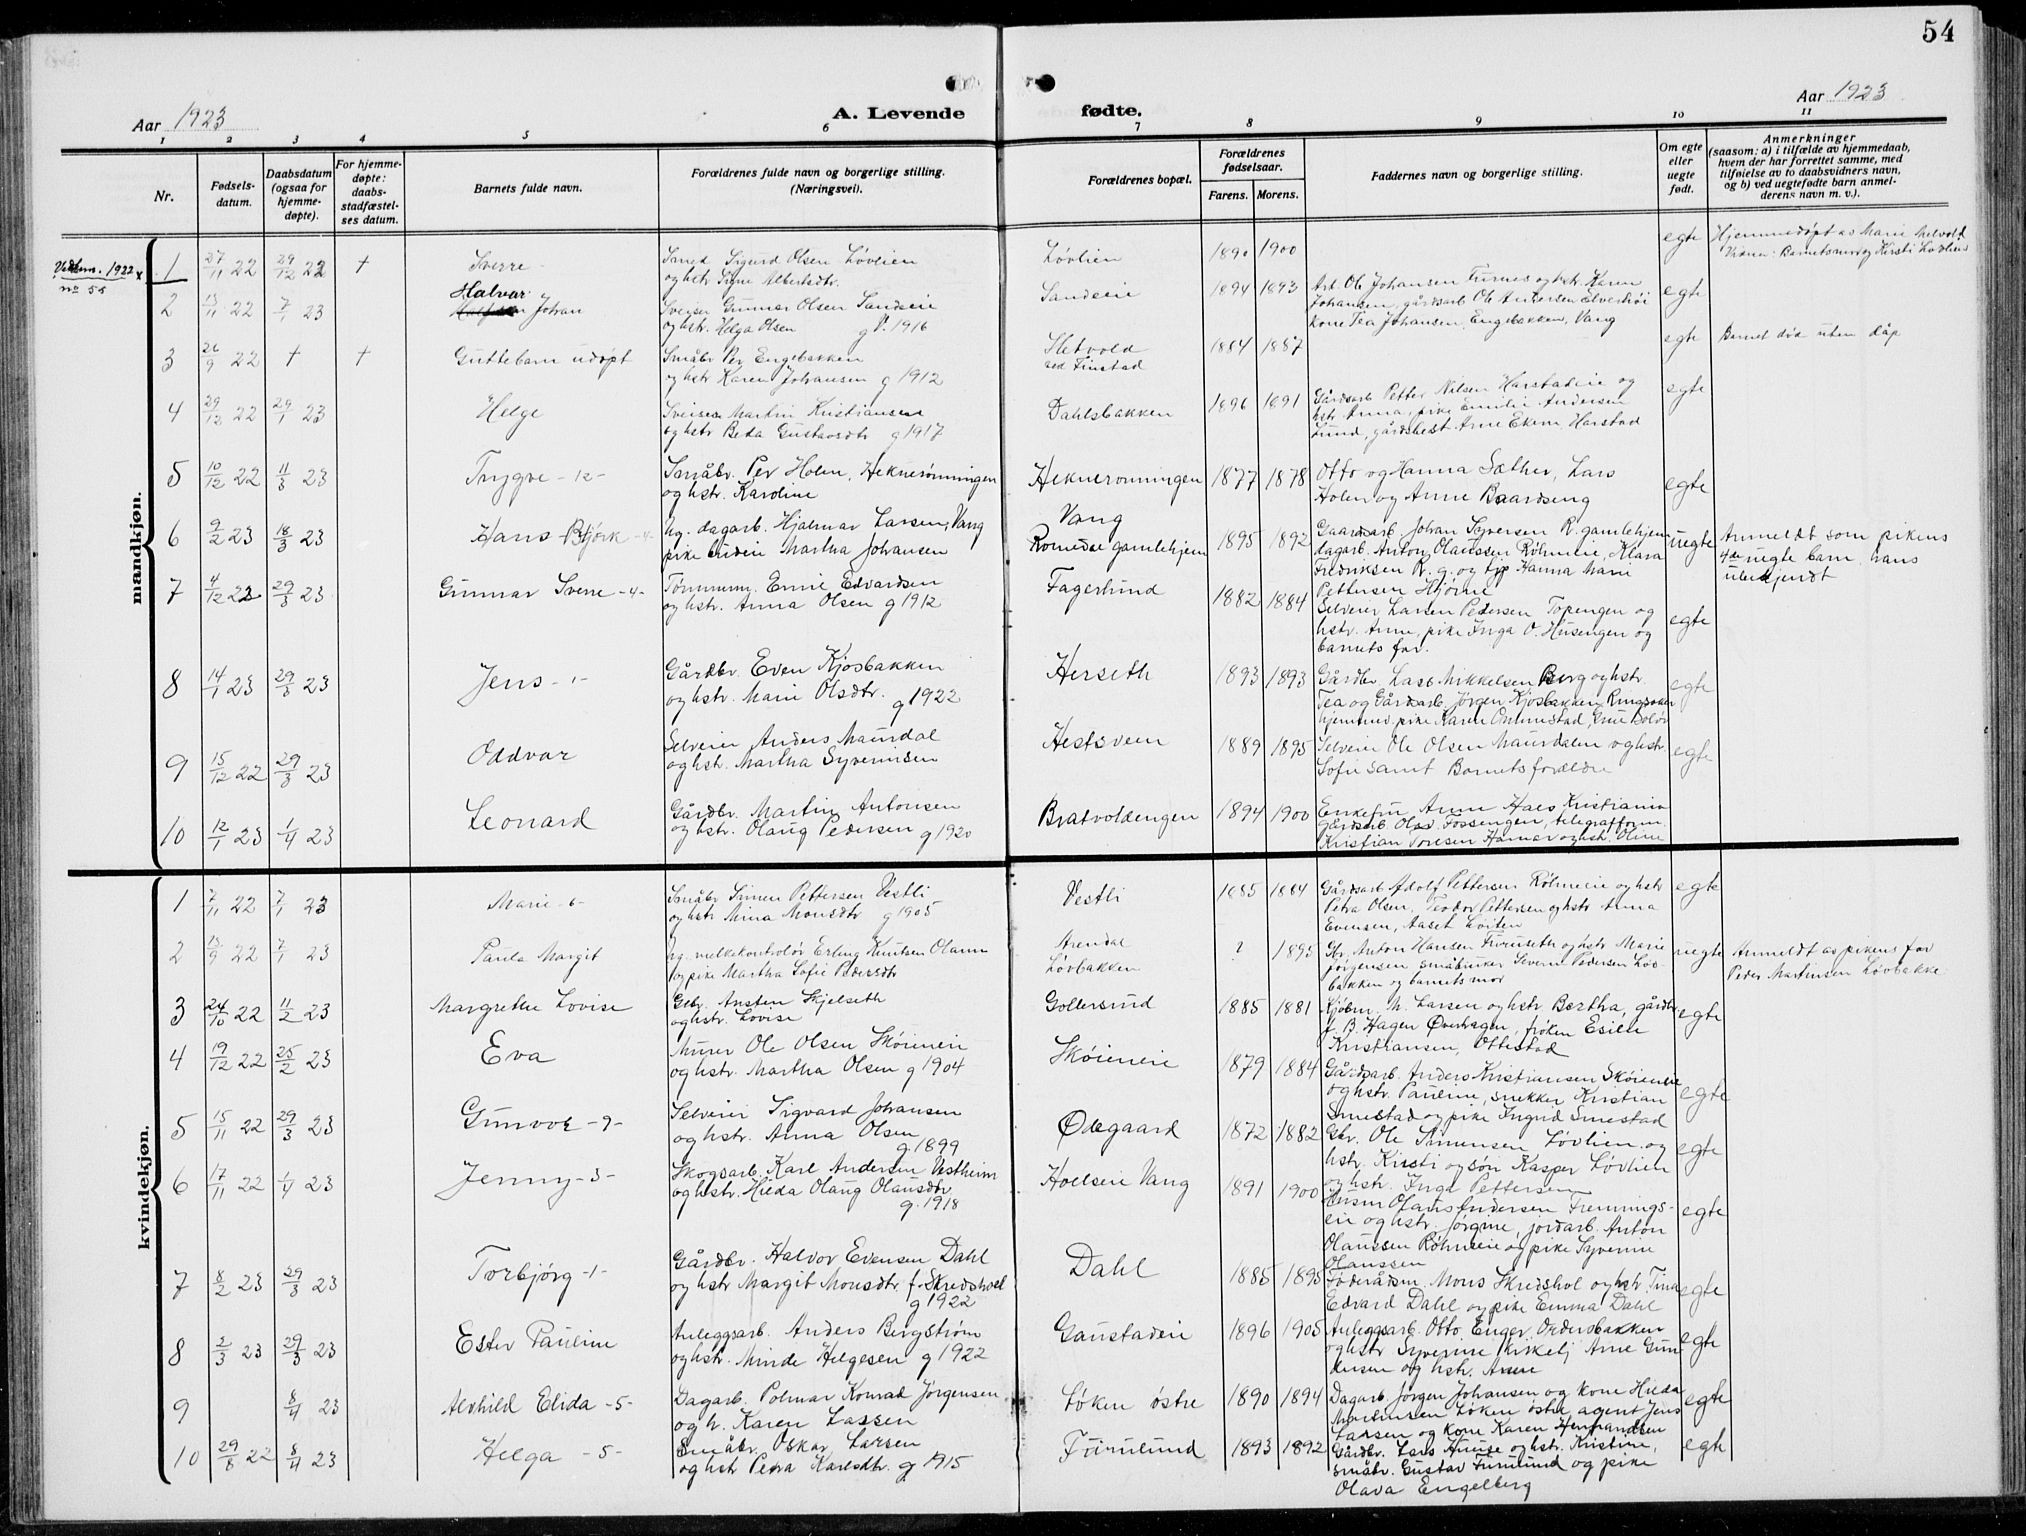 54
Aar 1923
A. Levende
fødte.
Aar 1923
1 2 3 4 5 6 7 8 9 10 11
Nr.
Fødsels-
datum.
Daabsdatum
(ogsaa for
hjemme-
døpte).
For hjemme-
døpte:
daabs-
stadfæstel-
ses datum.
Barnets fulde navn.
Forældrenes fulde navn og borgerlige stilling.
(Næringsvei).
Forældrenes bopæl.
Forældrenes
fødselsaar.
Farens. Morens.
Faddernes navn og borgerlige stilling.
Om egte
eller
uegte
født.
Anmerkninger
(saasom: a) i tilfælde av hjemmedaab,
hvem der har forrettet samme, med
tilføielse av to daabsvidners navn,
og b) ved uegtefødte barn anmel-
derens navn m. v.).
mandkjøn.
1 27/11 22 29/12 22 + Sverre
Sigurd Olsen Løvlien
og hstr Signe Albertsdtr.
Løvlien 1890 1900
egte
Hjemmedøpt av Marie Melvold
2 13/11 22 7/1 23 Halvar Johan
Sveiser Gunnar Olsen Sandeie
og hstr. Helga Olsen g V. 1916
Sandeie 1894 1893
Arb. Ole Johansen Furnes og hstr. Karen
Johansen, gårdsarb Ole Andersen
Kone Tea Johansen, Engebakken, Vang
egte
3 26/9 22 + + Guttebarn udøpt
Småbr Per Engebakken
og hstr Karen Johansen g 1912
Sletvold
ved Finstad
1884 1887
egte
Barnet død uten dåp
4 29/12 22 29/1 23 Helge
Sveiser Martin Kristiansen
og hstr Beda Gustavsdtr g 1917
Dahlsbakken 1896 1891
Gårdsarb Petter Nilsen Harstadeie og
hstr Anna, pike Emilie Andersen
Lund, gårdsbest Arne Ekem Harstad
egte
5 10/12 22 11/3 23 Trygve -12-
Småbr. Per Holen, Heknerønningen
og hstr. Karoline
Heknerønningen 1877 1878
Otto og Hanna Sæther, Lars
Holen og Anne Baardseng
egte
6 9/2 23 18/3 23 Hans Bjørk -4-
Ug. dagarb. Hjalmar Larsen, Vang
pike Martha Johansen
Vang
Romedal gamlehjem 1895 1892
Gaardsarb Johan Syversen R. gamlehjem
dagarb. Anton Olaussen Røhneie, Klara
Fredriksen R. g. og Hanna Marie
Pettersen Hjørne
uegte
Anmeldt som pikens
4de uegte barn, hans
ubekjendt
7 4/12 22 29/3 23 Gunnar Sverre -4-
Tømmerm. Emil Edvardsen
og hstr. Anna Olsen g 1912
Fagerlund 1882 1884
Selveier Larsen Pedersen Topengen og
hstr. Anne, pike Inga O. Husengen og
barnets far.
egte
8 14/1 23 29/3 23 Jens -1-
Gårdbr Even Kjosbakken
og hstr. Marie Olsdtr. g 1922
Herseth 1893 1893
Gårdbr. Lars Mikkelsen Berg og hstr.
Tea og Gårdsarb. Jørgen Kjosbakken Ringsaker
egte
9 15/12 22 29/3 23 Oddvar
Selveier Anders Maursdal
og hstr. Martha Syverinsen
Hestsveen 1889 1895
Selveier Ole Olsen Maursdalen og hstr.
Sofie samt Barnets forældre
egte
10 12/1 23 1/4 23 Leonard
Gårdbr. Martin Antonsen
og hstr. Olaug Pedersen g 1920
Bratvoldengen 1894 1900
Enkefru Anne Haes Kristiania
gårdsarb Olss Fossengen, telegrafform.
Kristian Toresen Hamar og hst. Oline
kvindekjøn.
1 7/11 22 7/1 23 Marie -6-
Småbr Simen Pettersen Vestli
og hstr Mina Monsdtr g 1905
Vestli 1885 1884
Gårdsarb Adolf Pettersen Røhneie og hstr
Petra Olsen, Teodor Pettersen og hstr Anna
Evensen, Aaset Løiten
egte
2 13/9 22 7/1 23 Paula Margit
ug. melkekontrolør Erling Knutsen
og pike Martha Sofie Pedersdtr
Arendal
Løvbakken
? 1895
Gbr. Anton Hansen Furuseth og hstr Marie
Jørgensen småbruker Severin Pedersen Løv-
bakken og barnets mor
uegte
Anmeldt av pikens far
Peder Martinsen Løvbakke
3 24/10 22 11/2 23 Margrethe Lovise
Gbr. Austen Skjelseth
og hstr. Lovise
Gollersrud 1885 1881
Kjøbm. M. Larsen og hstr Bertha, gårdbr
J. B. Hagen Øverhagen, frøken Esille
Kristiansen, Ottestad
egte
4 19/12 22 25/2 23 Eva
Murer Ole Olsen Skøieneie
og hstr. Martha Olsen g 1904
Skøieneie 1879 1884
Gårdsarb. Anders Kristiansen Skøieneie
og hstr. Pauline, snekker Kristian
Smestad og pike Ingrid Smestad
egte
5 15/11 22 29/3 23 Gunvor -9-
Selveier Sigvard Johansen
og hstr. Anna Olsen
g. 1899
Ødegaard 1872 1882
Gbr. Ole Simensen Løvlien og
hstr. Kirsti og søn Kasper Løvlien
og hstr. Inga Pettersen
egte
6 17/11 22 1/4 23 Jenny -3-
Skogsarb. Karl Andersen Vestheim
og hstr. Hilda Olaug Olausdtr
g. 1918
Hoelseie Vang 1891 1900
Husm Olaus Andersen Fremmings-
eie og hstr. Jørgine, jordarb. Anton
Olaussen Røhneie og pike Syverine
Olaussen
egte
7 8/2 23 29/3 23 Torbjørg -1-
Gårdbr. Halvor Evensen Dahl
og hstr Margit Monsdtr. f. Skredshoel
g 1922
Dahl 1885 1895
Føderådsm. Mons Skredshol og hstr. Tina
Edvard Dahl og pike Emma Dahl
egte
8 2/3 23 29/3 23 Ester Pauline
Anleggsarb. Anders Bergstrøm
og hstr. Minde Helgesen g 1922
Gaustadeie 1896 1905
Anleggsarb. Otto Enger, Ordersbakken
og hstr Syverine Kirkelj Arne Gun
dersen og hstr. Anne
egte
9 8/4 23 Alvhild Elida -5-
Dagarb. Polmar Konrad Jørgensen
og h. Karen Lassen
Løken østre 1890 1894
Dagarb. Jørgen Johansen og kone Hilda
Martinsen Løken østre, agent Jens
Larsen og kone Karen Henriandsen
egte
10 29/8 22 8/4 23 Helga -5-
Småbr. Oskar Larsen
og hstr Petra Karlsdtr. g 1915
Furulund 1893 1892
Gårdbr. Lars Huuse og hstr. Kristine,
småbr. Gustav Furulund og pike
Olava Engelberg
egte